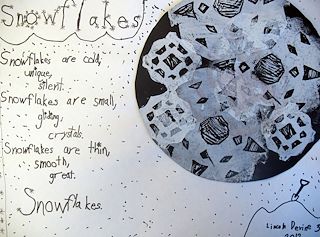 Snowflakes
Snowflakes are cold,
unique,
silent.
Snowflakes are small,
gliding,
crystals.
Snowflakes are thin,
smooth,
great.
Snowflakes.
2012